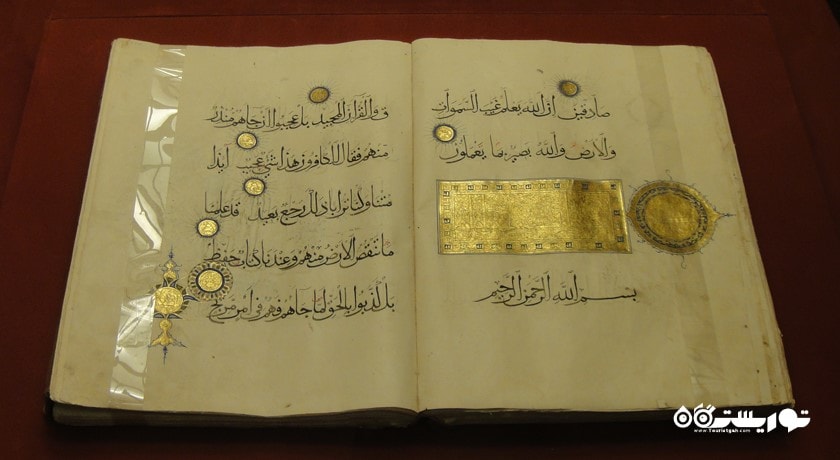 صادقين ان الله يعلم غيب السموات
والارض والله بصير بما يعملون
بسم الله الرحمن الرحيم
ق والقران المجيد بل عجبوا ان جاهم منذر
منهم فقال الكافرون هذا شي عجيب ايذا
متنا وكنا ترابا ذلك رجع بعيد قد علمنا
ما تنقص الارض منهم وعندنا كتاب حفيظ
بل كذبوا بالحق لما جاهم فهم في امر مريج
توریستگاه
www.Touristgah.com